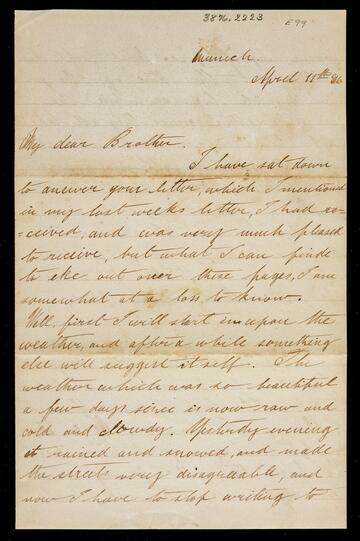 3876.2223
E99
Munich.
April 11th 86
My dear Brother.
I have sat down
to answer your letter, which I mentioned
in my last weeks letter, I had re-
=ceived, and was very much pleased
to receive, but what I can finde
to eke out over these pages, I am
somewhat at a loss, to know.
Well, first I will start in upon the
weather, and after a while something
else will suggest itself. The
weather which was so beautiful
a few days since is now raw and
cold and clowdy. Yesterdy evening
it rained and snowed, and made
the streets very disagreeable, and
now I have to stop writing to